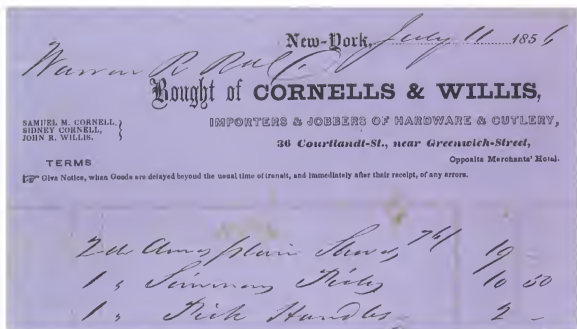 New-York, July 11 1856
Warren R
Bought of CORNELLS & WILLIS,
SAMUEL M. CORNELL,
SIDNEY CORNELL,
JOHN R. WILLIS.
IMPORTERS & JOBBERS OF HARDWARE & CUTLERY,
36 Courtlandt-St., near Greenwich-Street,
TERMS
Opposite Merchants' Hotel.
☞ Give Notice, when Goods are delayed beyond the usual time of transit, and immediately after their receipt, of any errors.
2 Ames plain 19
1 " Simmons 10 50
1 " Pick Handles 2 -